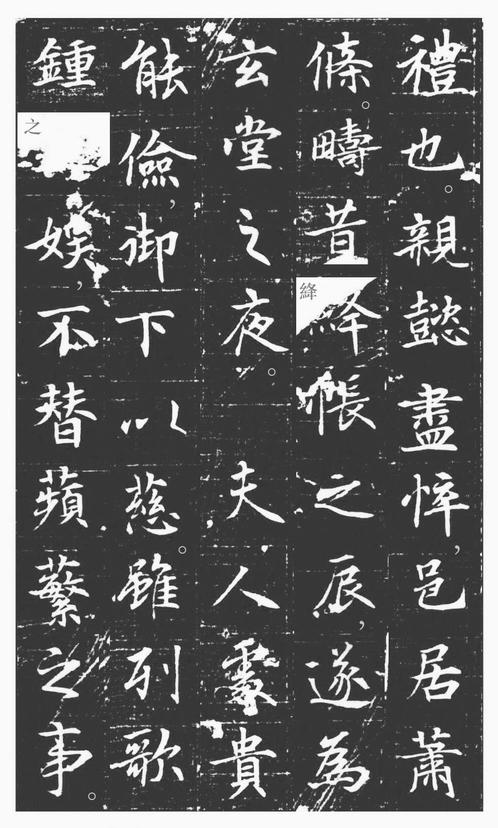 禮也。親懿盡悴，邑居蕭
條。疇昔絳帳之辰，遂為
玄堂之夜。夫人處貴
能儉，御下以慈。雖列歌
鍾之娛，不替蘋蘩之事。